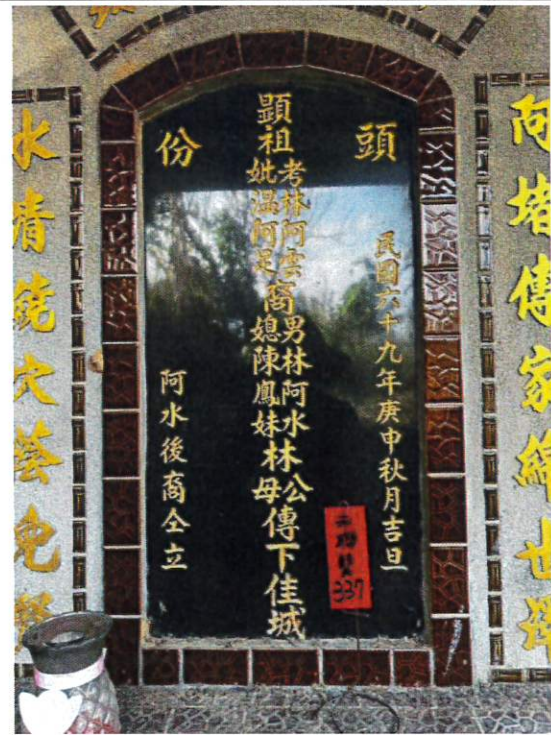 阿堵傳家綿世
頭份
民國六十九年庚申秋月吉旦
顯祖
考林阿雲
妣溫阿足
裔
男林阿水
媳陳鳳妹
林
公
母
傳下佳城
阿水後裔仝立
337
水清繞穴蔭